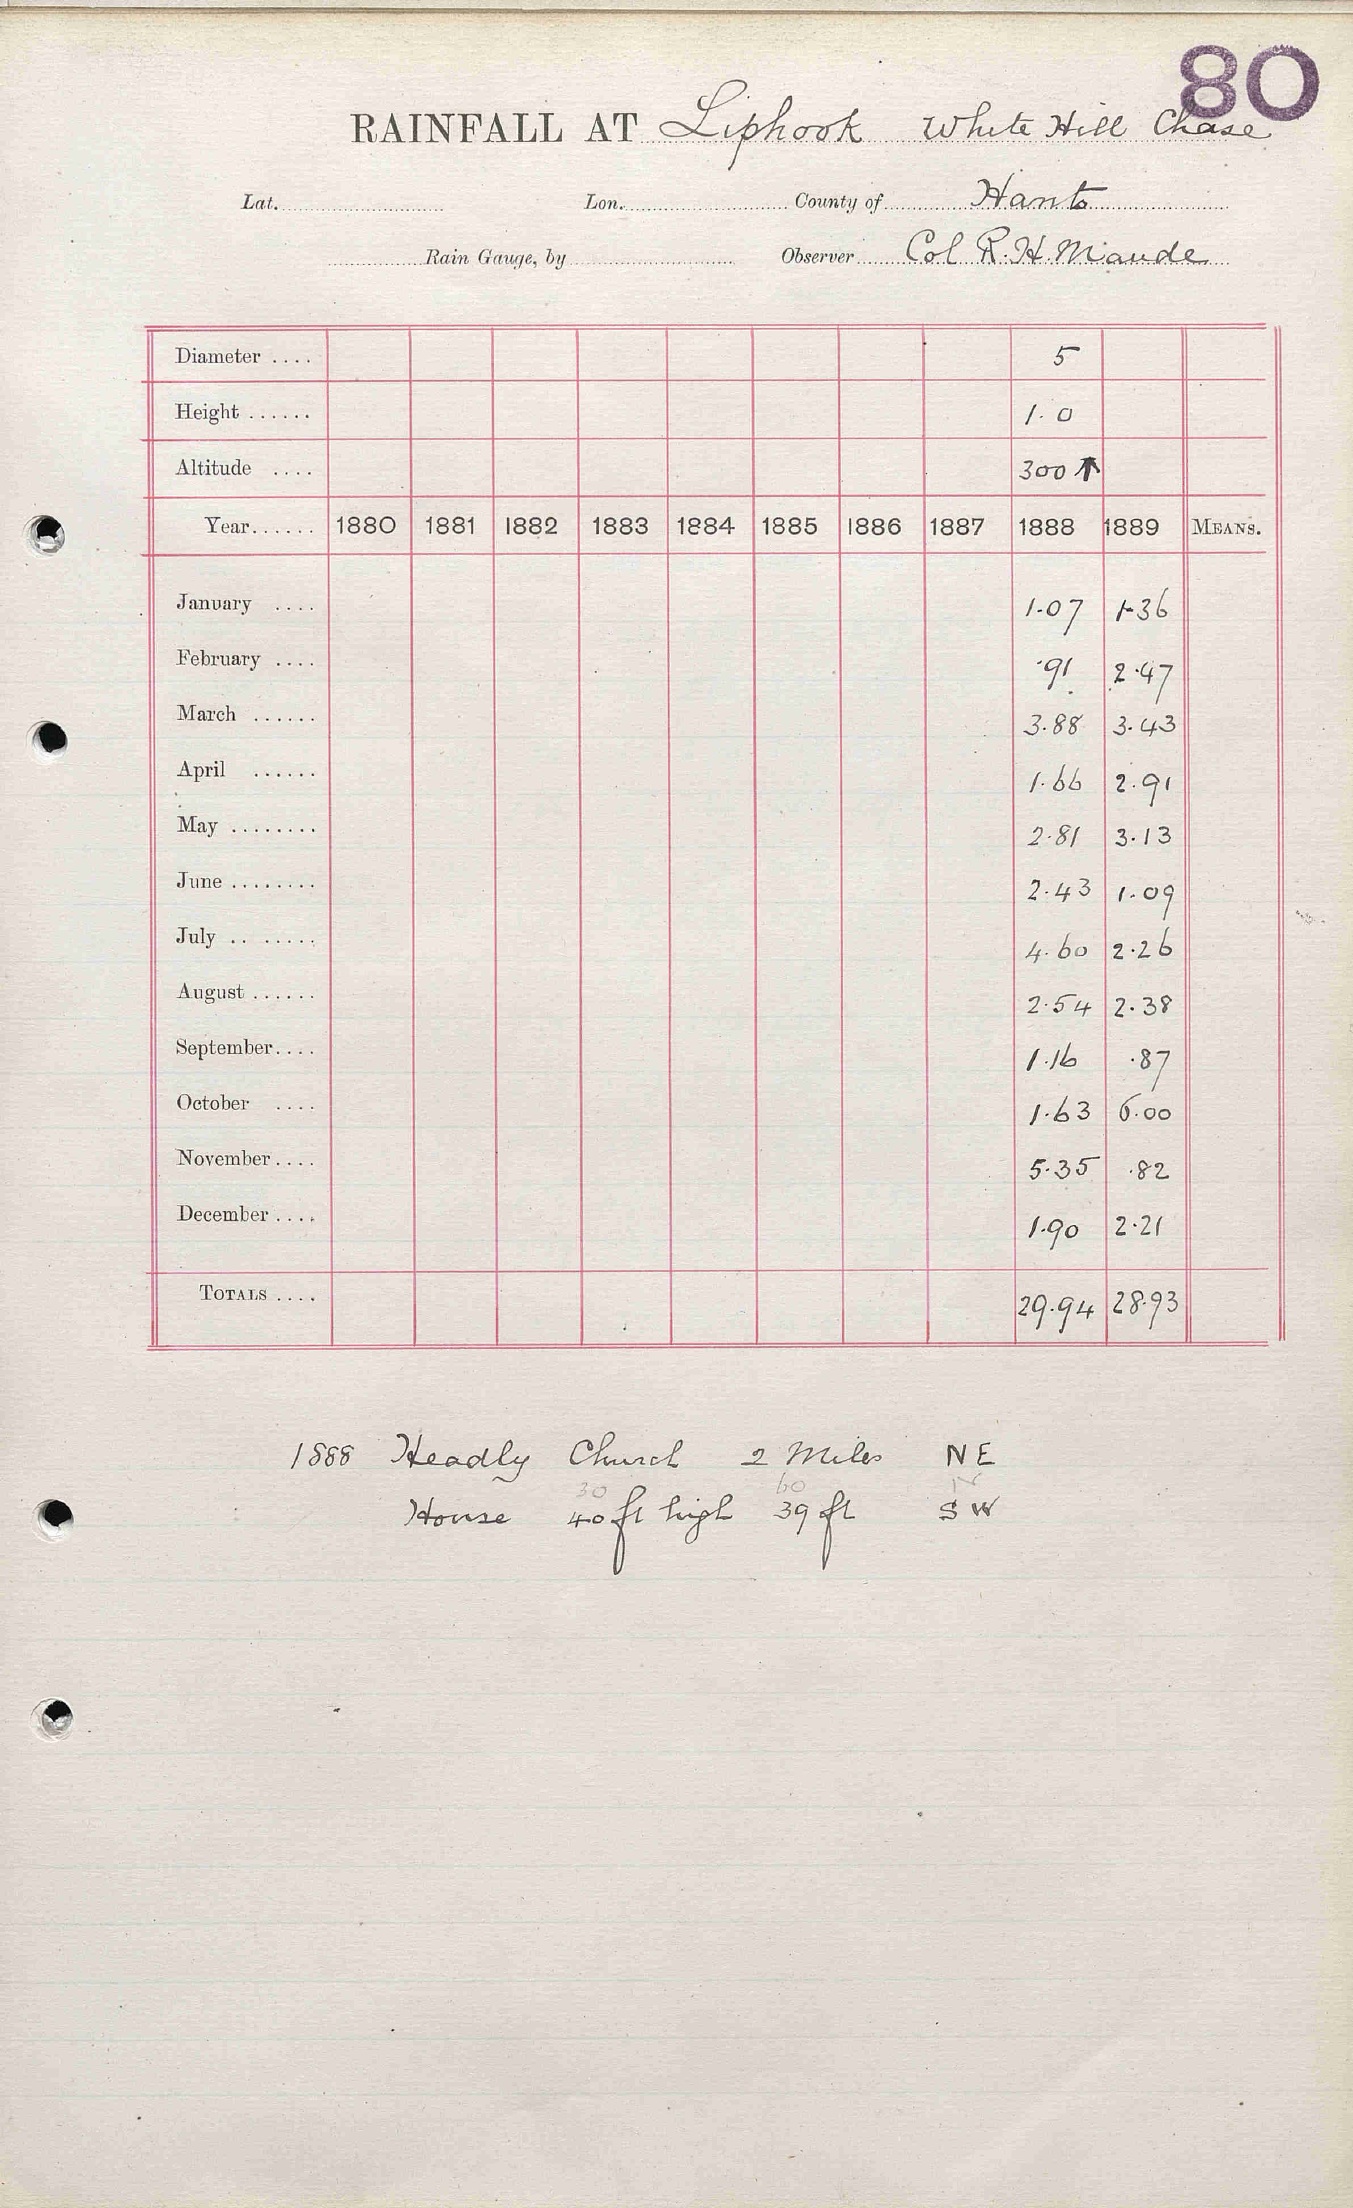 80
RAINFALL AT Liphook White Hill Chase
Lat. Lon. County of Hants
Rain Gauge, by Observer Col R. H. Maude
Diameter .... 5
Height ...... 1.0
Altitude .... 300↑
Year...... 1880 1881 1882 1883 1884 1885 1886 1887 1888 1889 MEANS.
January .... 1.07 1.36
February .... .91 2.47
March ...... 3.88 3.43
April ...... 1.66 2.91
May ........ 2.81 3.13
June ........ 2.43 1.09
July .. ...... 4.60 2.26
August ...... 2.54 2.38
September.... 1.16 .87
October .... 1.63 6.00
November.... 5.35 .82
December .... 1.90 2.21
TOTALS .... 29.94 28.93
1888 Headly Church 2 Miles NE
30 60 N
House 40 ft high 39 ft SW